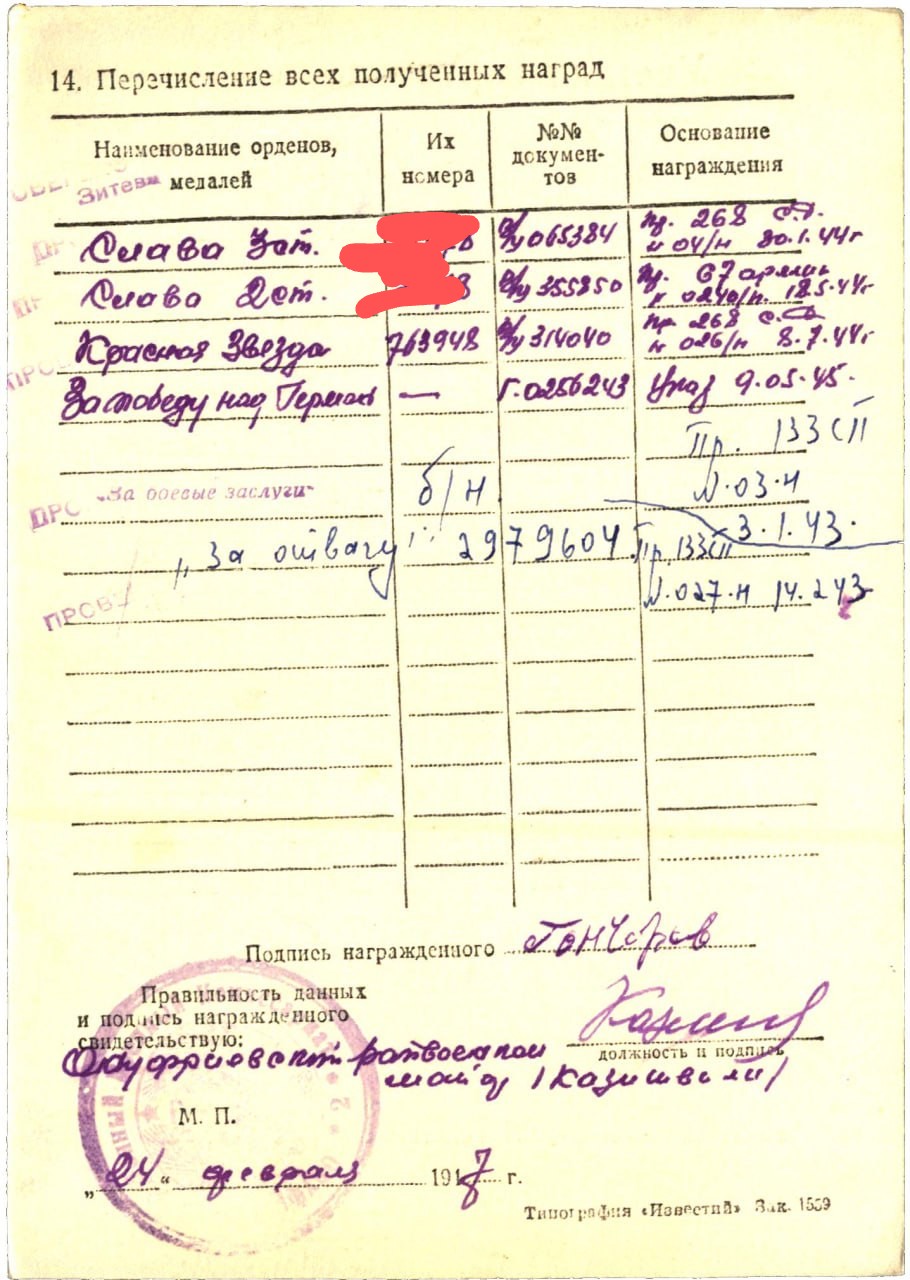 14. Перечисление всех полученных наград
Наименование орденов, медалей
Их номера
№№ документов
Основание награждения
Слава 3 ст. о/к 065384 Пр. 268 с.д. н 04/н 30.1.44 г
Слава 2 ст. о/к 355850 Пр. 67 армии н 0240/н. 18.5.44 г
Красная Звезда 763948 о/к 314040 Пр 268 с.д. н 026/н 8.7.44 г
За победу над Герман — Г. 0256243 Указ 9.05.45.
Пр. 133 СП
"За боевые заслуги" б/н N.03.н
3.1.43.
"За отвагу" 2979604 Пр. 133 СП
N.027.н 14.2.43
ПРОВ
Подпись награжденного Гончаров
Правильность данных
и подпись награжденного
свидетельствую:
должность и подпись
Онуфриевский райвоенком
майор (Казишвили)
М. П.
„24“ февраля 1947 г.
Типография «Известий» Зак. 1559